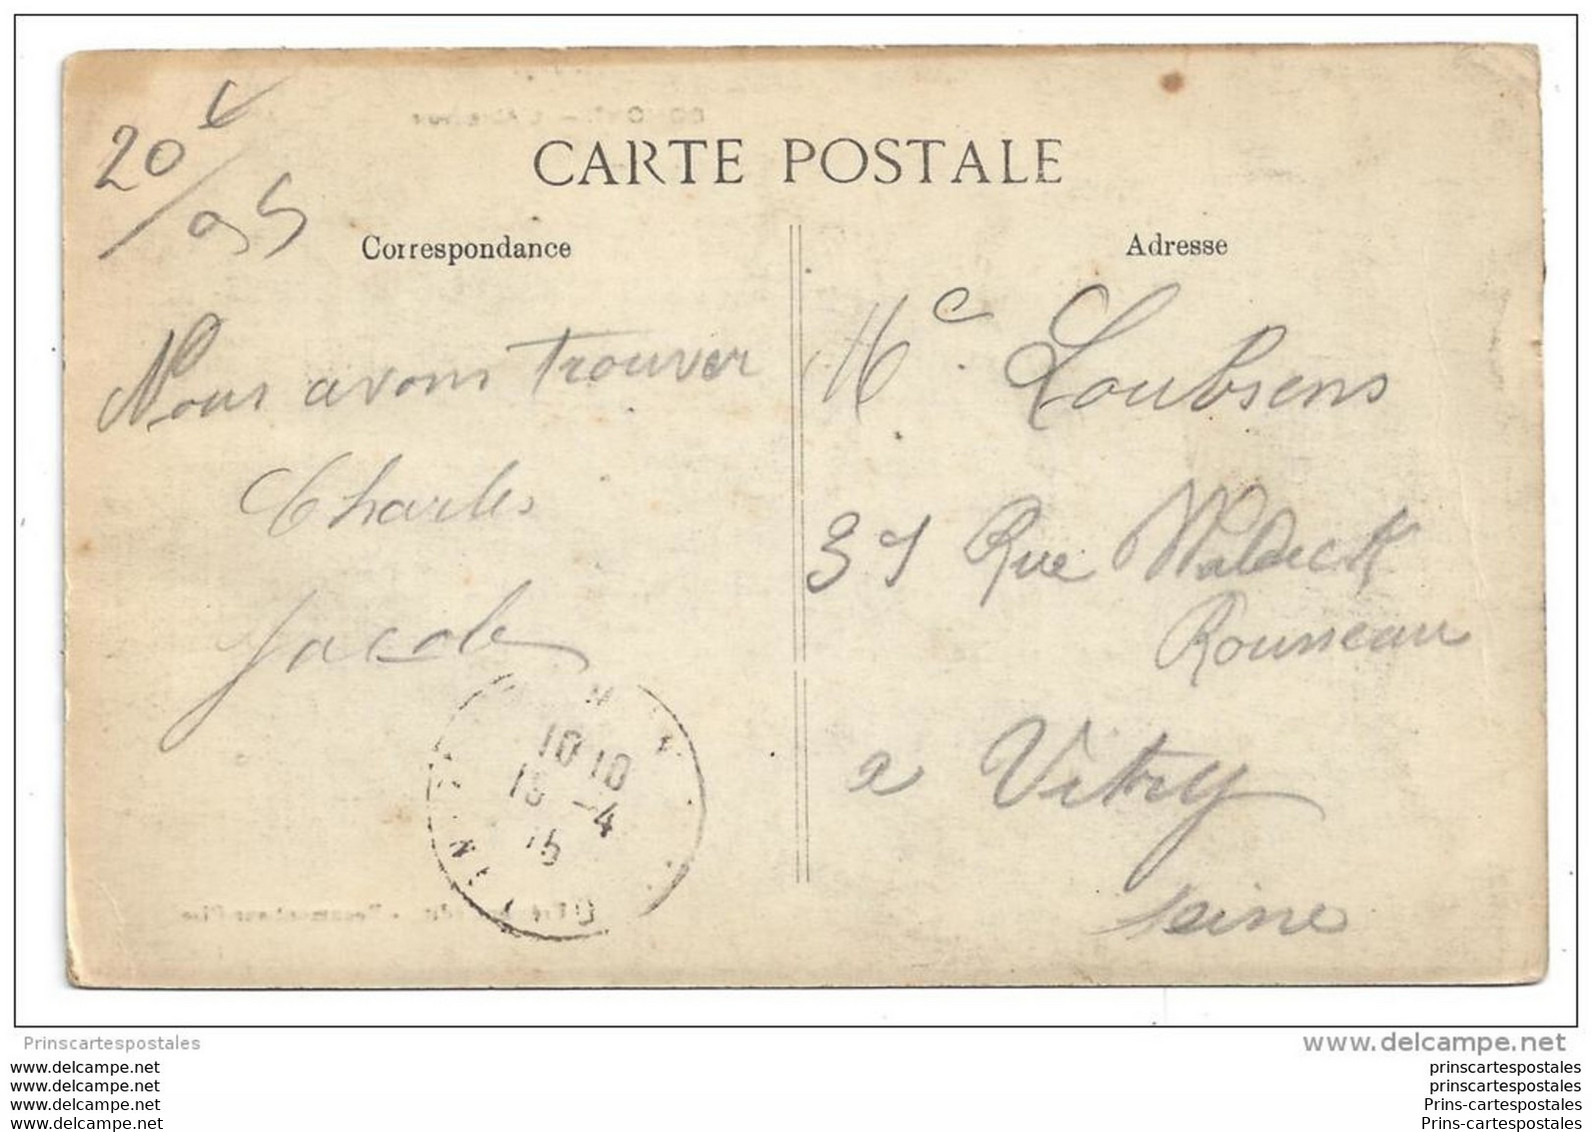 CARTE POSTALE
Correspondance
Adresse
20
Nous avons trouver
Charles
Jacob
Me Loubsens
37 Rue Waldeck
Rousseau
a Vitry
Seine
10 10
-4
Prinscartespostales
www.delcampe.net
www.delcampe.net
www.delcampe.net
www.delcampe.net
www.delcampe.net
prinscartespostales
prinscartespostales
Prins-cartespostales
Prins-cartespostales